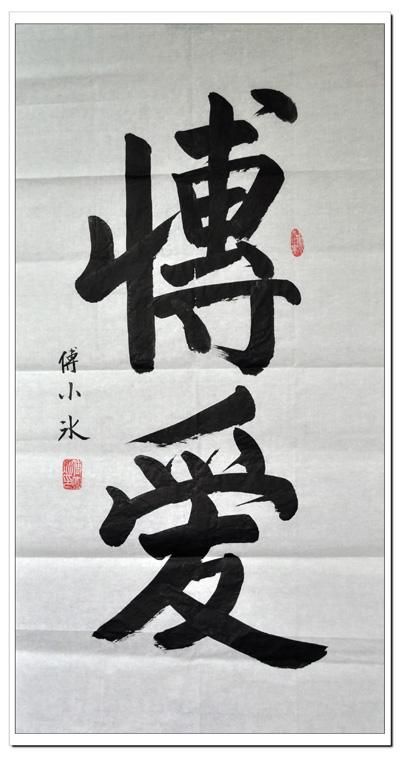 博爱
傅小冰